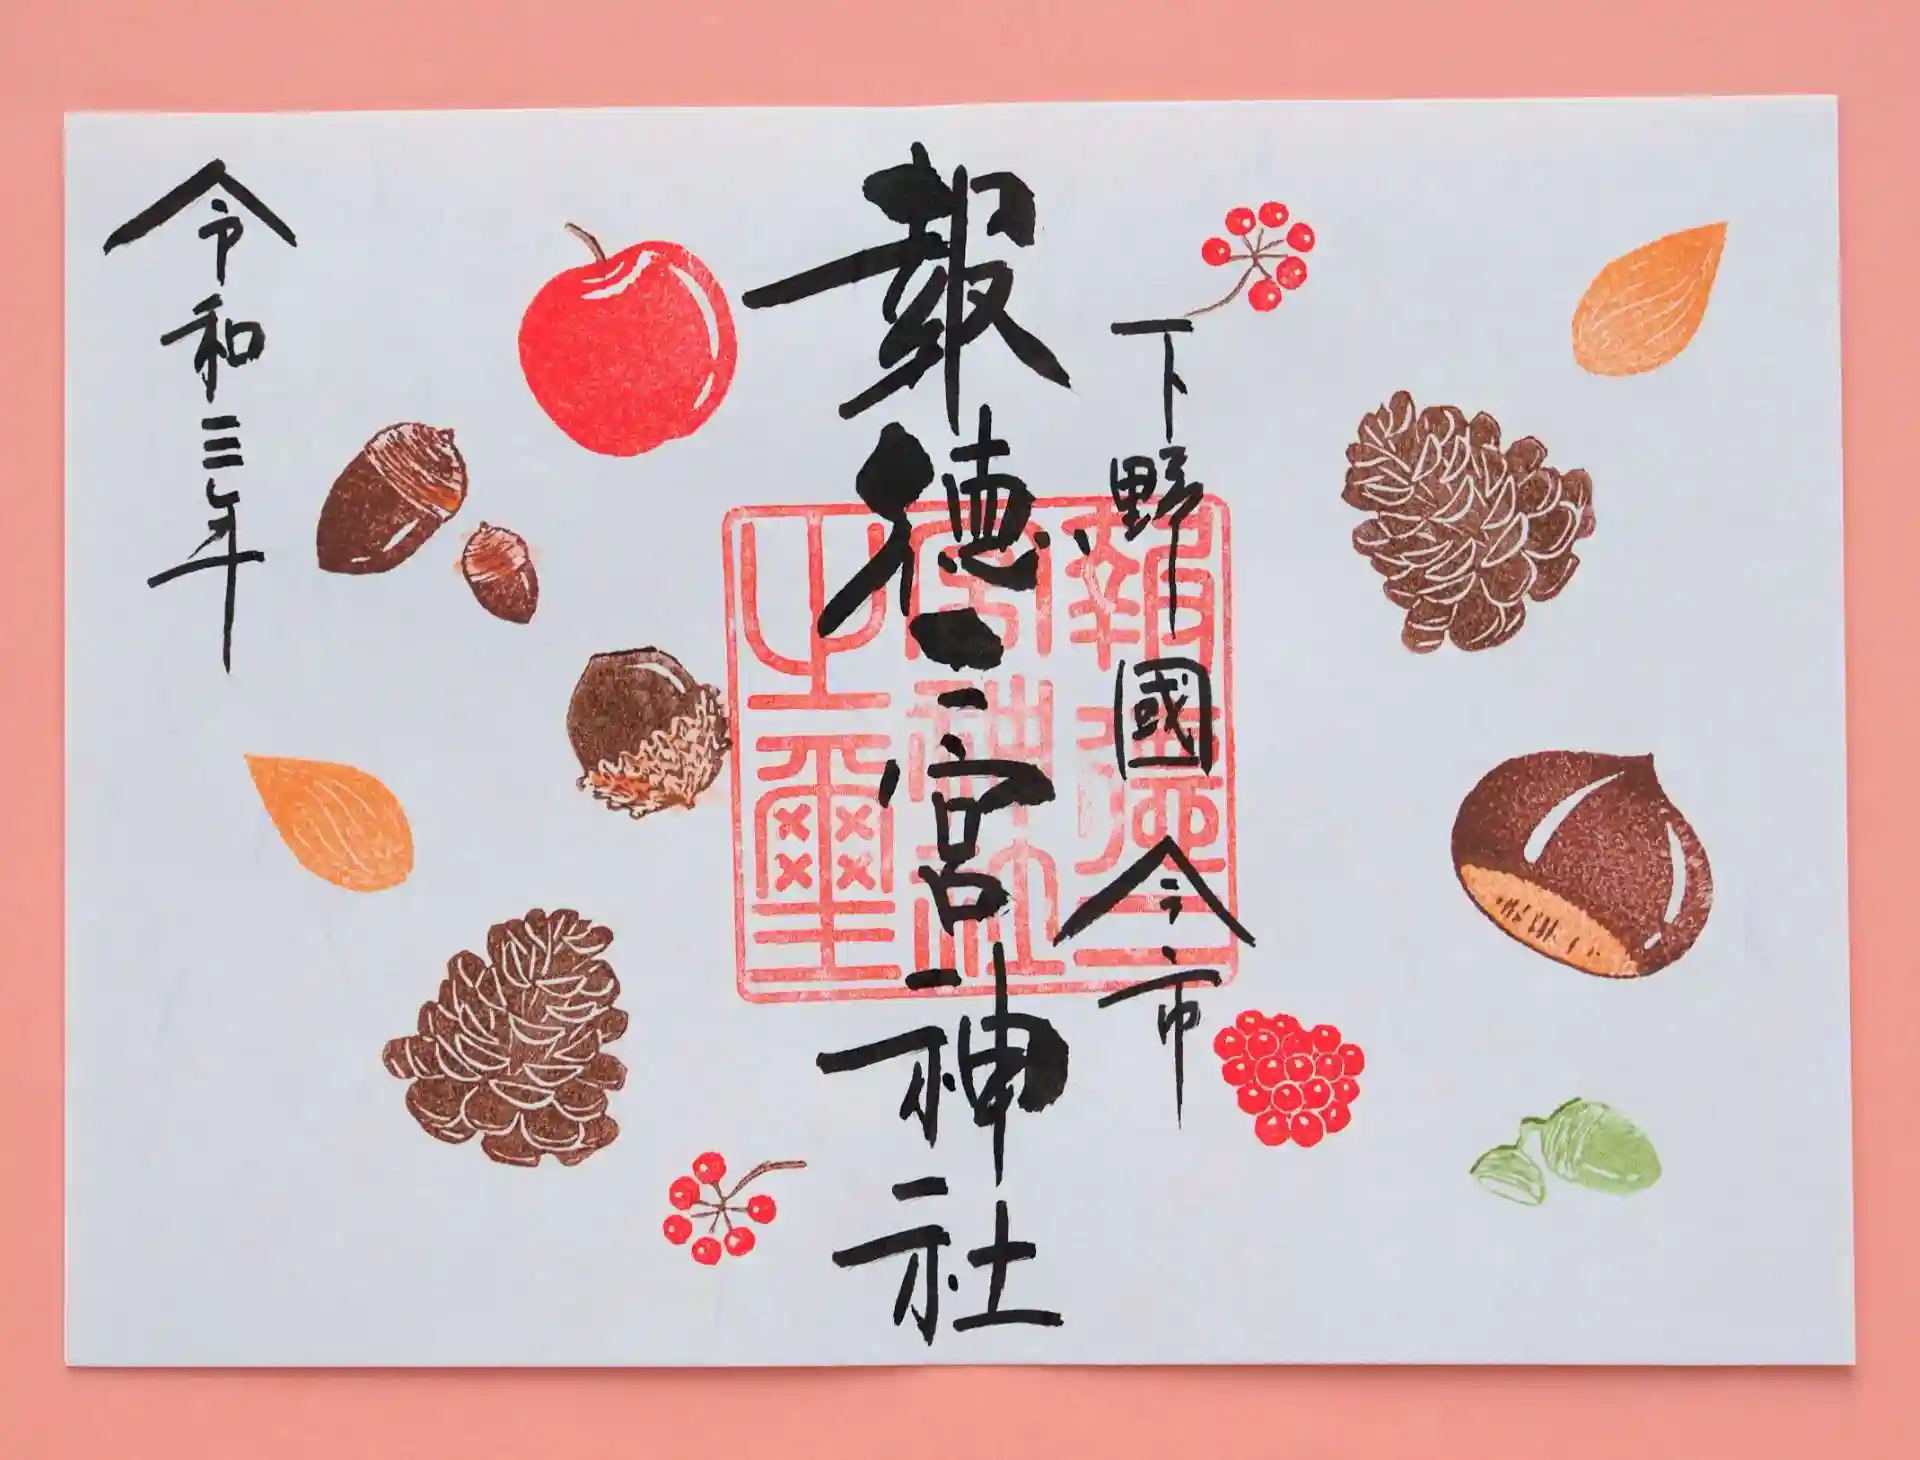 下野國今市
報徳二宮神社
令和三年
報徳二宮神社之璽